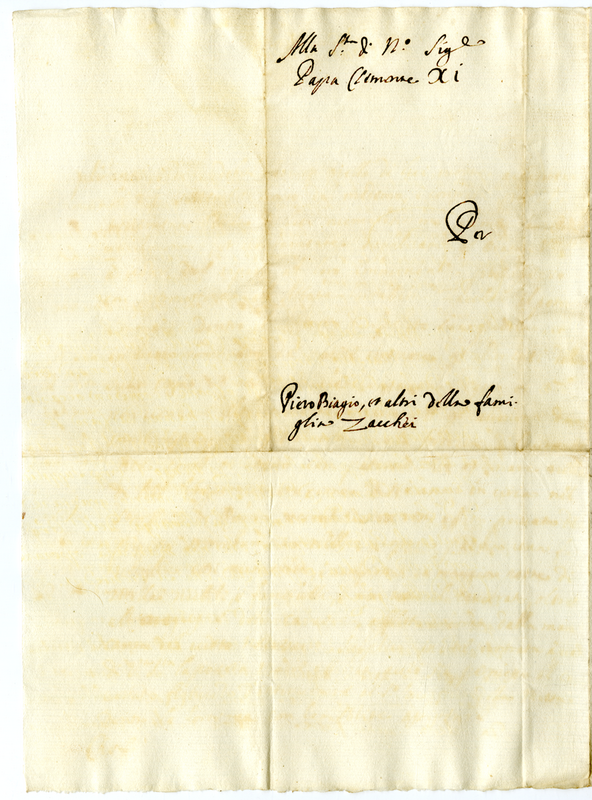 Alla S.tà di N.o Sig.e
Papa Clemente XI
Per
Piero Biagio, et altri della fami-
glia Zacchei